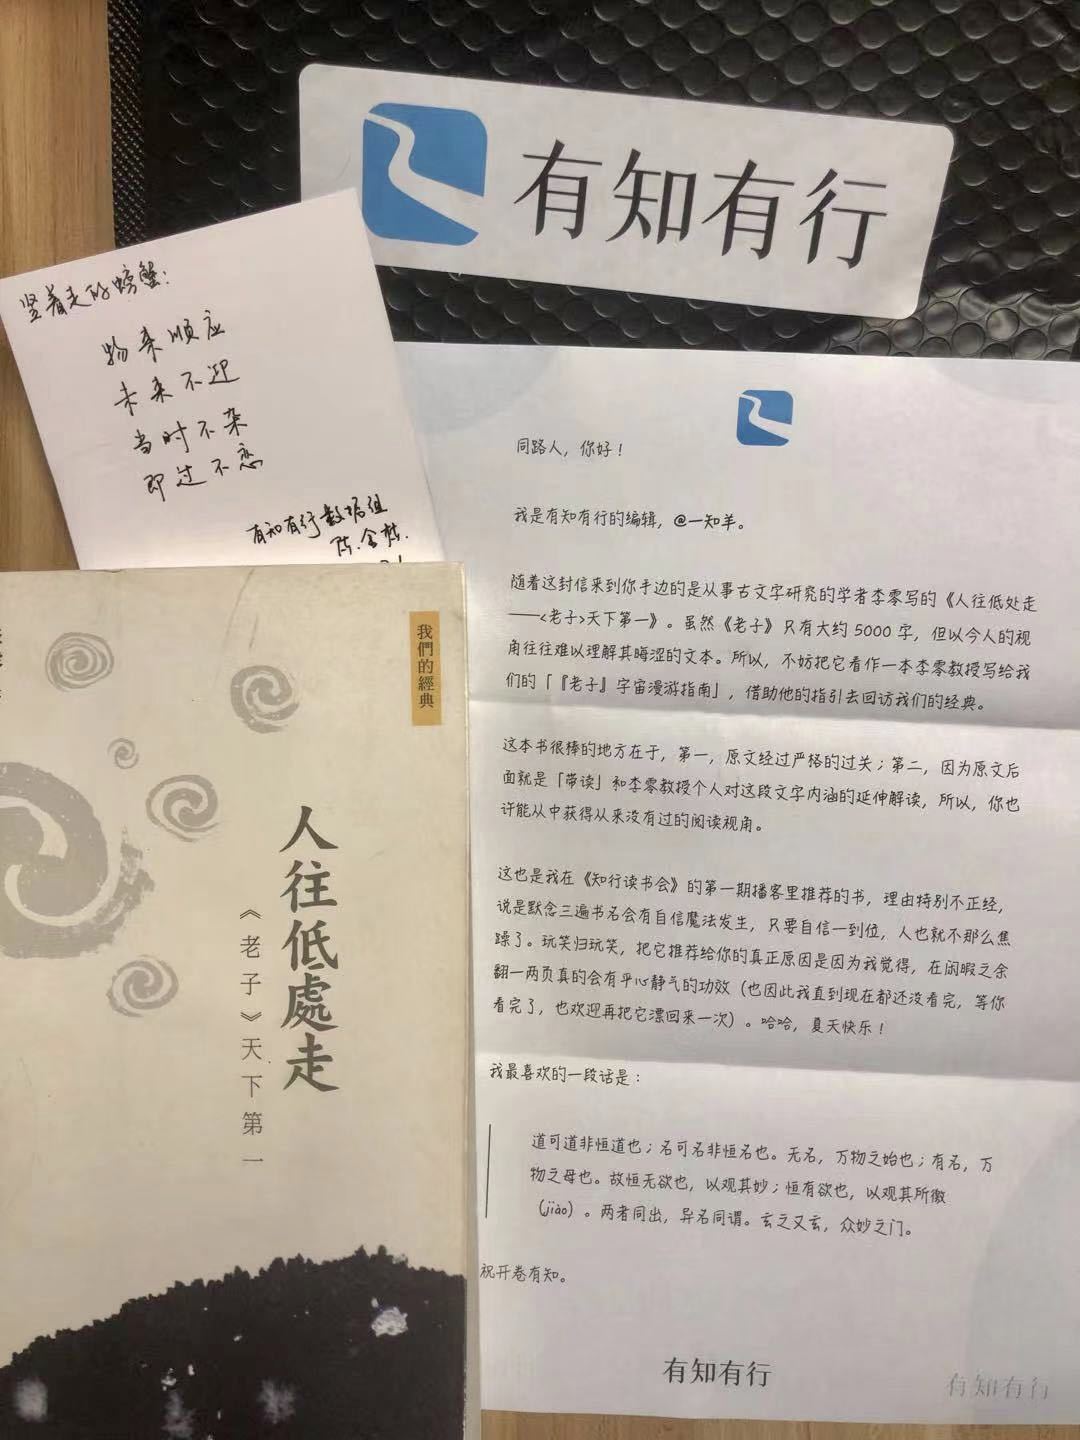 有知有行
竖着走的螃蟹：
物来顺应
未来不迎
当时不杂
即过不恋
有知有行数据组
陈
同路人，你好！
我是有知有行的编辑，@一知羊。
随着这封信来到你手边的是从事古文字研究的学者李零写的《人往低处走
——<老子>天下第一》。虽然《老子》只有大约5000字，但以今人的视
角往往难以理解其晦涩的文本。所以，不妨把它看作一本李零教授写给我
们的「『老子』宇宙漫游指南」，借助他的指引去回访我们的经典。
这本书很棒的地方在于，第一，原文经过严格的过关；第二，因为原文后
面就是「带读」和李零教授个人对这段文字内涵的延伸解读，所以，你也
许能从中获得从来没有过的阅读视角。
这也是我在《知行读书会》的第一期播客里推荐的书，理由特别不正经，
说是默念三遍书名会有自信魔法发生，只要自信一到位，人也就不那么焦
躁了。玩笑归玩笑，把它推荐给你的真正原因是因为我觉得，在闲暇之余
翻一两页真的会有平心静气的功效（也因此我直到现在都还没看完，等你
看完了，也欢迎再把它漂回来一次）。哈哈，夏天快乐！
我最喜欢的一段话是：
道可道非恒道也；名可名非恒名也。无名，万物之始也；有名，万
物之母也。故恒无欲也，以观其妙；恒有欲也，以观其所徼
（jiào）。两者同出，异名同谓。玄之又玄，众妙之门。
祝开卷有知。
有知有行
有知有行
我們的經典
人往低處走
《老子》天下第一